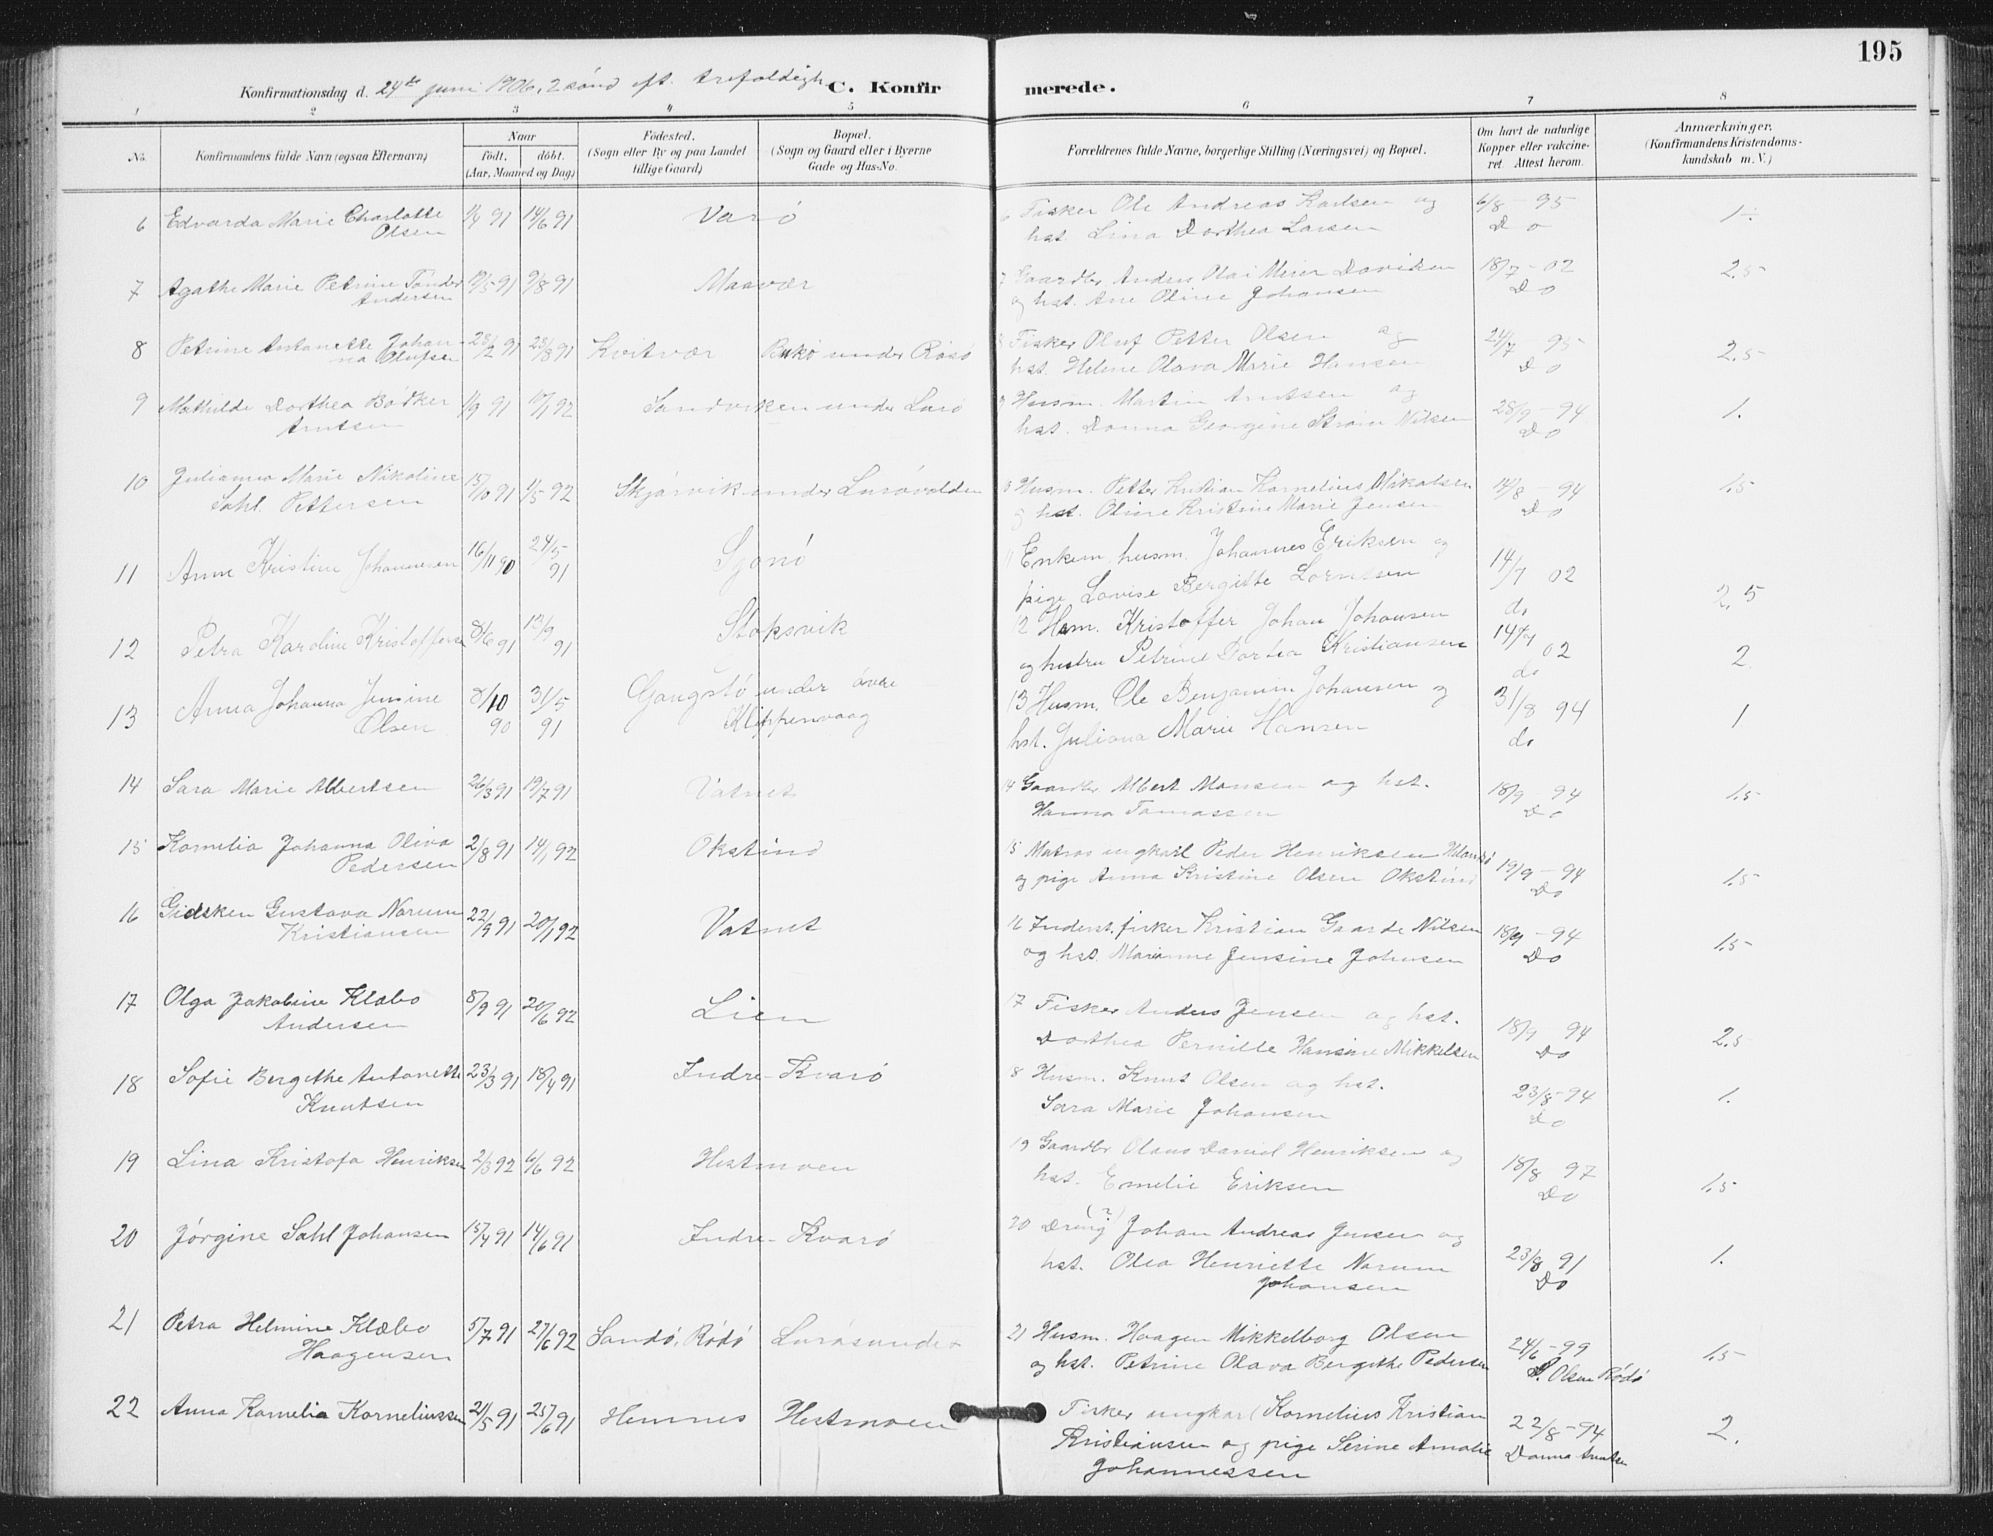 195
Konfirmationsdag d. 24de juni 1906, 2 sönd eft. trefoldigh. C. Konfirmerede.
1 2 3 4 5 6 7 8
No. Konfirmandens fulde Navn (ogsaa Efternavn) Naar födt. döbt. (Aar, Maaned og Dag) Födested. (Sogn eller By og paa Landet tillige Gaard) Bopæl. (Sogn og Gaard eller i Byerne Gade og Hus-No. Forældrenes fulde Navne, borgerlige Stilling (Næringsvei) og Bopæl. Om havt de naturlige Kopper eller vaccineret. Attest herom. Anmærkninger. (Konfirmandens Kristendomskundskab m. V.)
6 Edvarda Marie Charlotte 91 14/6 91 Varö Fisker Ole Andreas Karlsen og 6/8 - 95
Olsen hst. Lina Dorthea Larsen Do
7 Agathe Marie Petrine Tönder 91 9/8 91 Maavær Gaardbr. Anders Olai Meier Daviken 18/7 - 02 2.5
Andersen og hst. Ane Oline Johansen Do
8 Petrine Antonette Johan- 23/2 91 23/8 91 Kvitvær Bukö under Rösö Fisker Oluf Petter Olsen og 21/7 - 95 2.5
na Olufsen hst. Helene Olava Marie Hansen Do
9 Mathilde Dorthea Bödker 1/9 91 92 Sandviken under Lurö Husm. Martin Arntsen og 28/9 - 94 1.
Arntsen hst. Donna Georgine Ström Nilsen Do
10 Julianna Marie Nikoline 15/10 91 1/5 92 Skjærvik under Lurövolden Husm. Petter Kristian Kornelius Nikolaisen 14/8 - 94 1.5
Sahl Pettersen og hst. Oline Kristine Marie Jensen Do
11 Anne Kristine Johannesen 16/11 90 24/5 91 Sjonö Enkem. husm. Johannes Eriksen og 14/7 02 2,5
pige Lovise Bergitte Lorntsen do
12 Petra Karoline Kristoffersen 8/6 91 13/9 91 Stoksvik 12 Hsm. Kristoffer Johan Johansen 14/7 02 2.
og hustru Petrine Dortea Kristiansen do
13 Anna Johanna Jensine 8/10 90 31/5 91 Gangstö under övre 13 Husm. Ole Benjamin Johansen og 31/8 94 1
Olsen Klippenvaag hst. Juliana Marie Hansen do
14 Sara Marie Albertsen 26/3 91 19/7 91 Vatnet 14 Gaardbr Albert Monsen og hst. 18/9 - 94 1.5
Hanna Tomassen Do
15 Kornelia Johanna Oliva 2/8 91 14/1 92 Okstind 15 Matros ungkarl Peder Henriksen 19/9 - 94 1.5
Pedersen og pige Anna Kristine Olsen Okstind Do
16 Gidsken Gustava Norum 22/9 91 20/1 92 Vatnet 16 Inderst. fisker Kristian Gaarde Nilsen 18/9 - 94 1.5
Kristiansen og hst. Marianne Jensine Johnsen Do
17 Olga Jakobine Klæbo 8/9 91 20/6 92 Lien 17 Fisker Anders Jensen og hst. 18/9 94 2.5
Andersen Dorthea Pernille Hansine Mikkelsen Do
18 Sofie Bergithe Antonette 23/3 91 18/4 91 Indre-Kvarö 8 Husm. Knut Olsen og hst. 23/8 - 94 1.
Knutsen Sara Marie Johansen Do
19 Lina Kristofa Henriksen 2/3 92 6/6 92 Hestmoen 19 Gaardbr Olaus Daniel Henriksen og 18/8 97 1.5
hst. Emelie Eriksen Do
20 Jörgine Sahl Johansen 15/4 91 14/6 91 Indre-Kvarö 20 Dreng (?) Johan Andreas Jensen og 23/8 91 1.
hst. Olea Henriette Norum Do
Johansen
21 Petra Helmine Klæbo 5/7 91 27/6 92 Sandö, Rödö Lurösundet 21 Husm. Haagen Mikkelborg Olsen 24/6 - 99 1.5
Haagensen og hst. Petrine Olava Bergithe Pedersen P. Olsen Rödö
22 Anna Kornelia Korneliussen 21/5 91 25/6 91 Hemnes Hestmoen Fisker ungkarl Kornelius Kristian 22/8 - 94 2.
Kristiansen og pige Serine Amalie Donna Arntsen
Johannessen